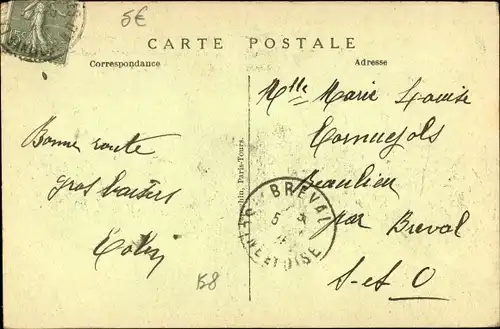 5€
CARTE POSTALE
Correspondance
Adresse
Bonne route
gros baisers
Mlle Marie Louise
Beaulieu
par Breval
S-et O
BREVAL
5
SEINE ET OISE
Paris-Tours.
158